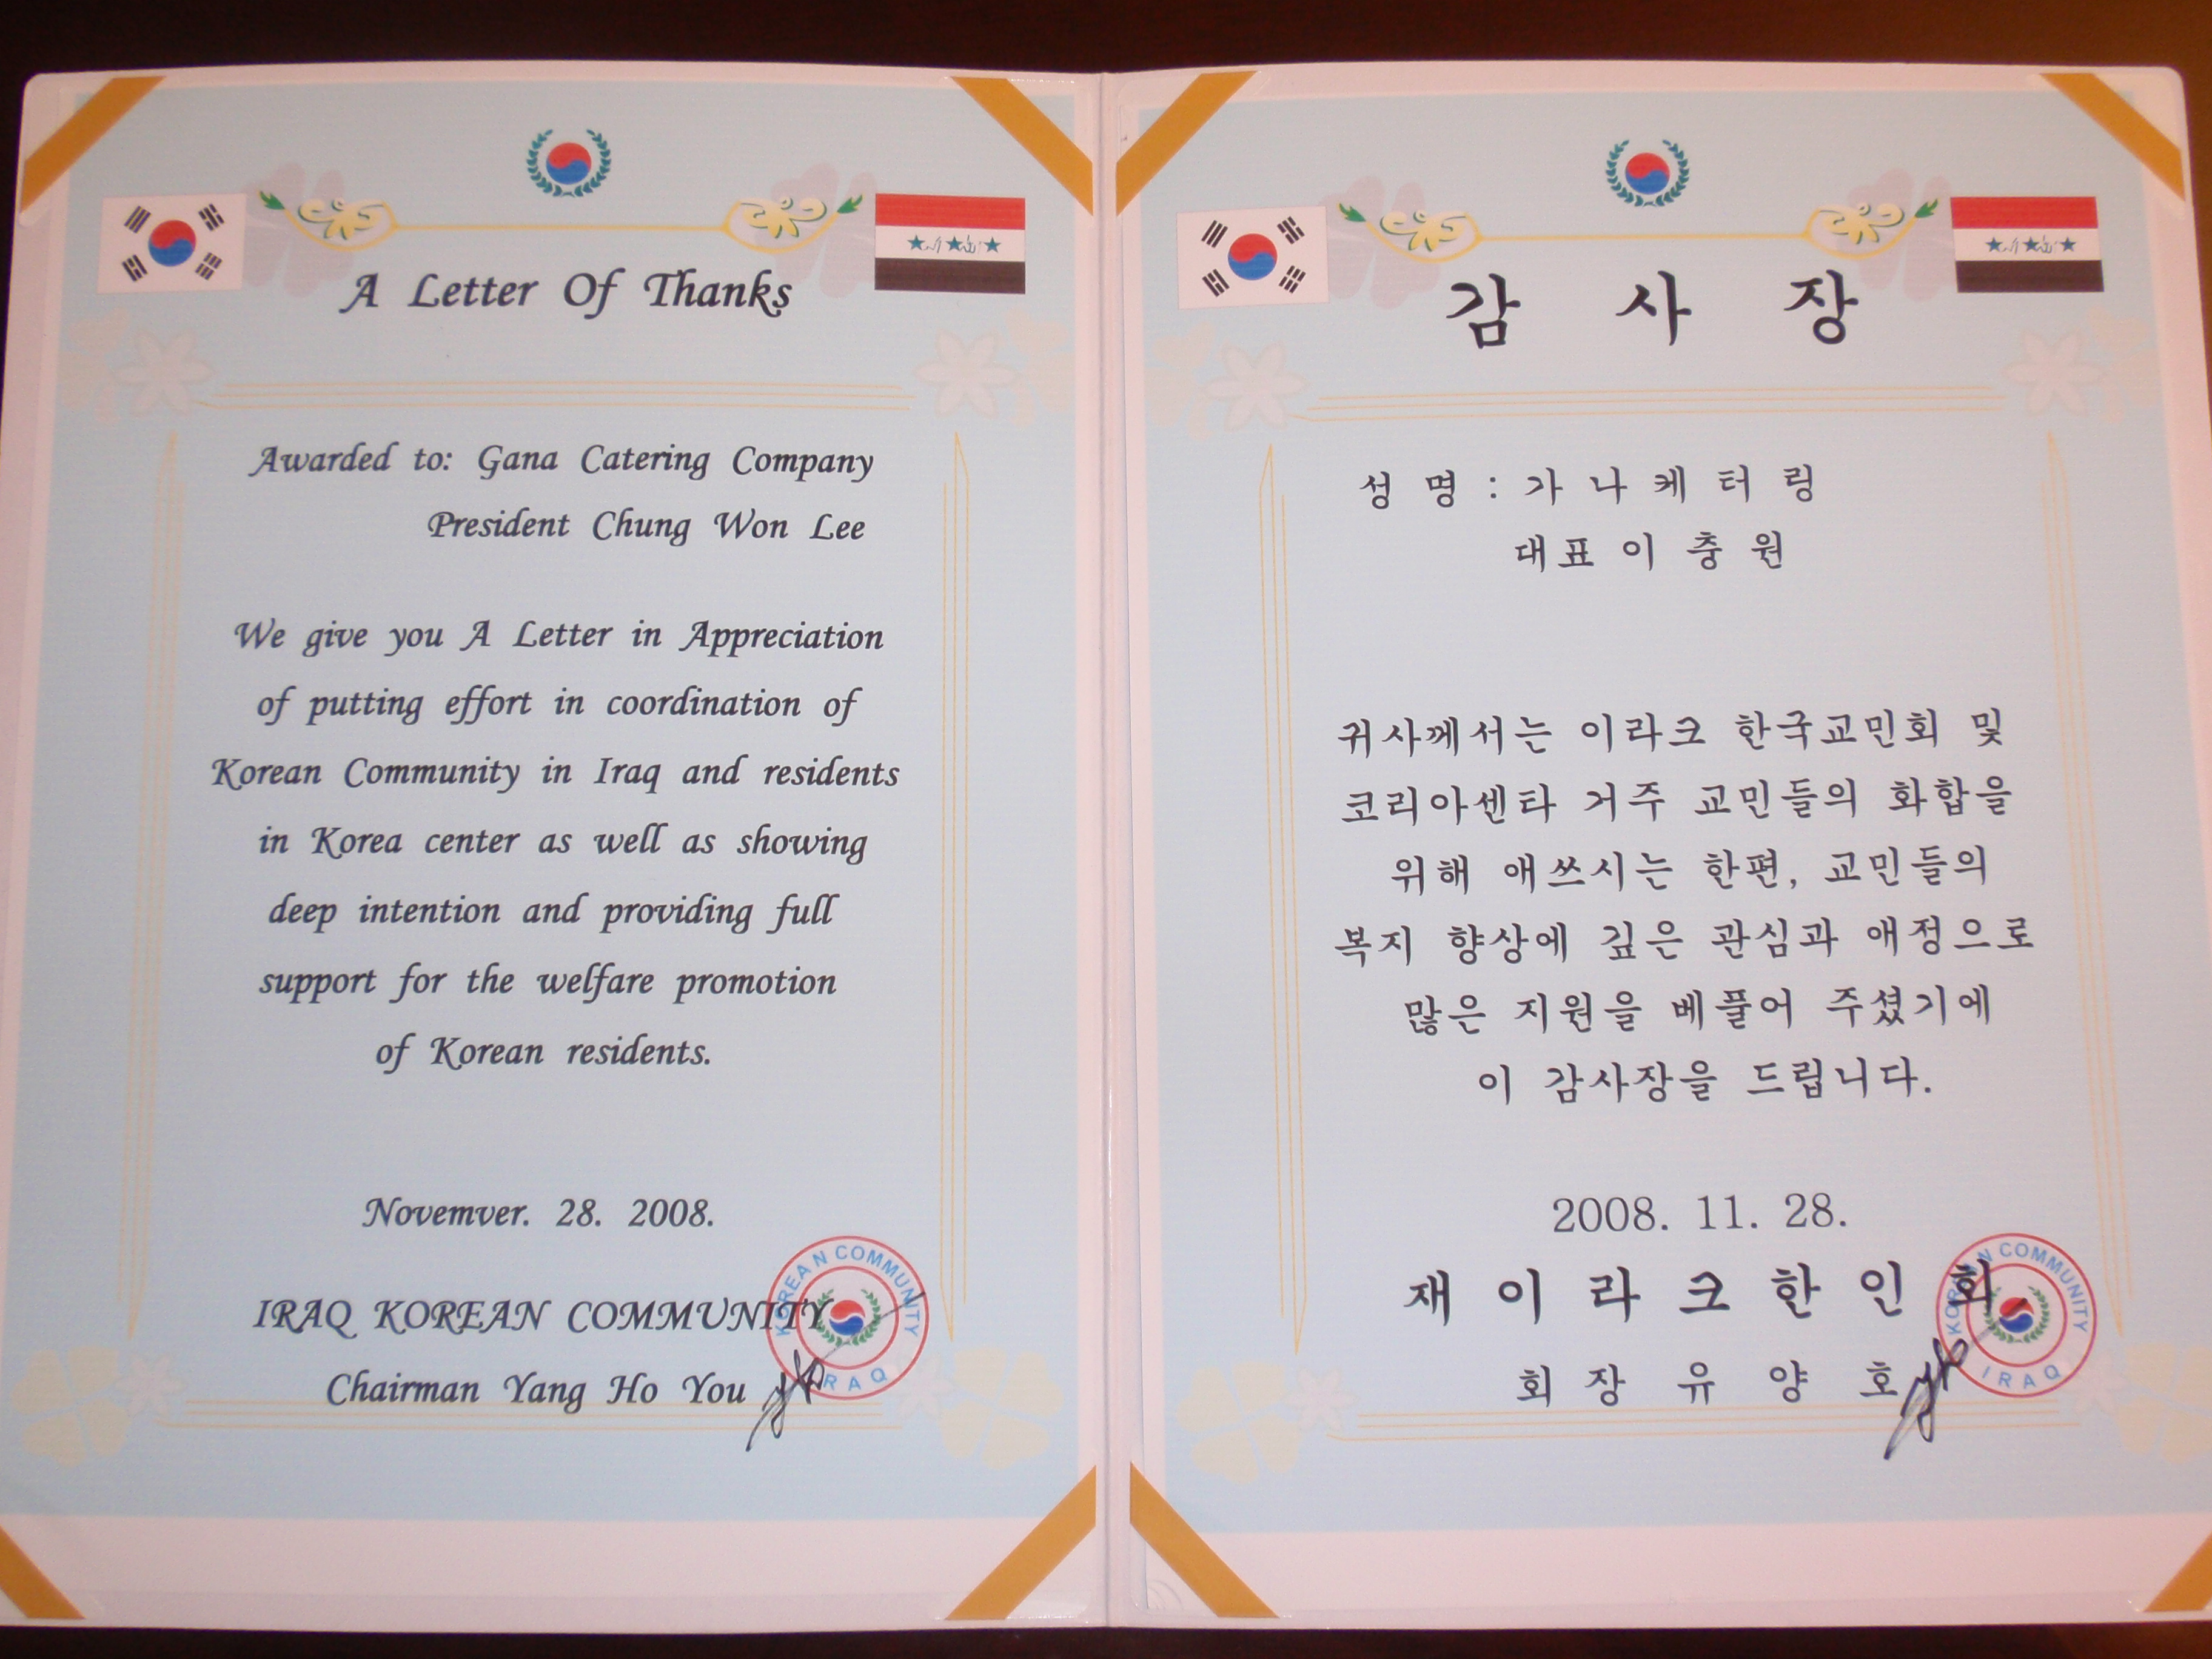 A Letter Of Thanks
Awarded to: Gana Catering Company
President Chung Won Lee
We give you A Letter in Appreciation
of putting effort in coordination of
Korean Community in Iraq and residents
in Korea center as well as showing
deep intention and providing full
support for the welfare promotion
of Korean residents.
Novemver. 28. 2008.
IRAQ KOREAN COMMUNITY
Chairman Yang Ho You
KOREAN COMMUNITY
IRAQ
감 사 장
성 명 : 가 나 케 터 링
대표 이 충 원
귀사께서는 이라크 한국교민회 및
코리아센타 거주 교민들의 화합을
위해 애쓰시는 한편, 교민들의
복지 향상에 깊은 관심과 애정으로
많은 지원을 베풀어 주셨기에
이 감사장을 드립니다.
2008. 11. 28.
재 이 라 크 한 인 회
회 장 유 양 호
KOREAN COMMUNITY
IRAQ